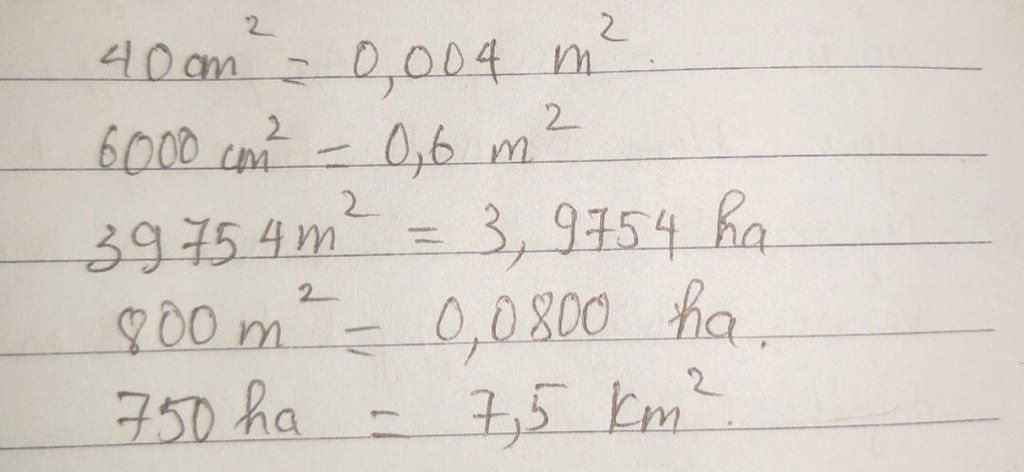 40cm² = 0,004 m².
6000 cm² = 0,6 m²
39754m² = 3,9754 ha
800 m² = 0,0800 ha.
750 ha = 7,5 km².